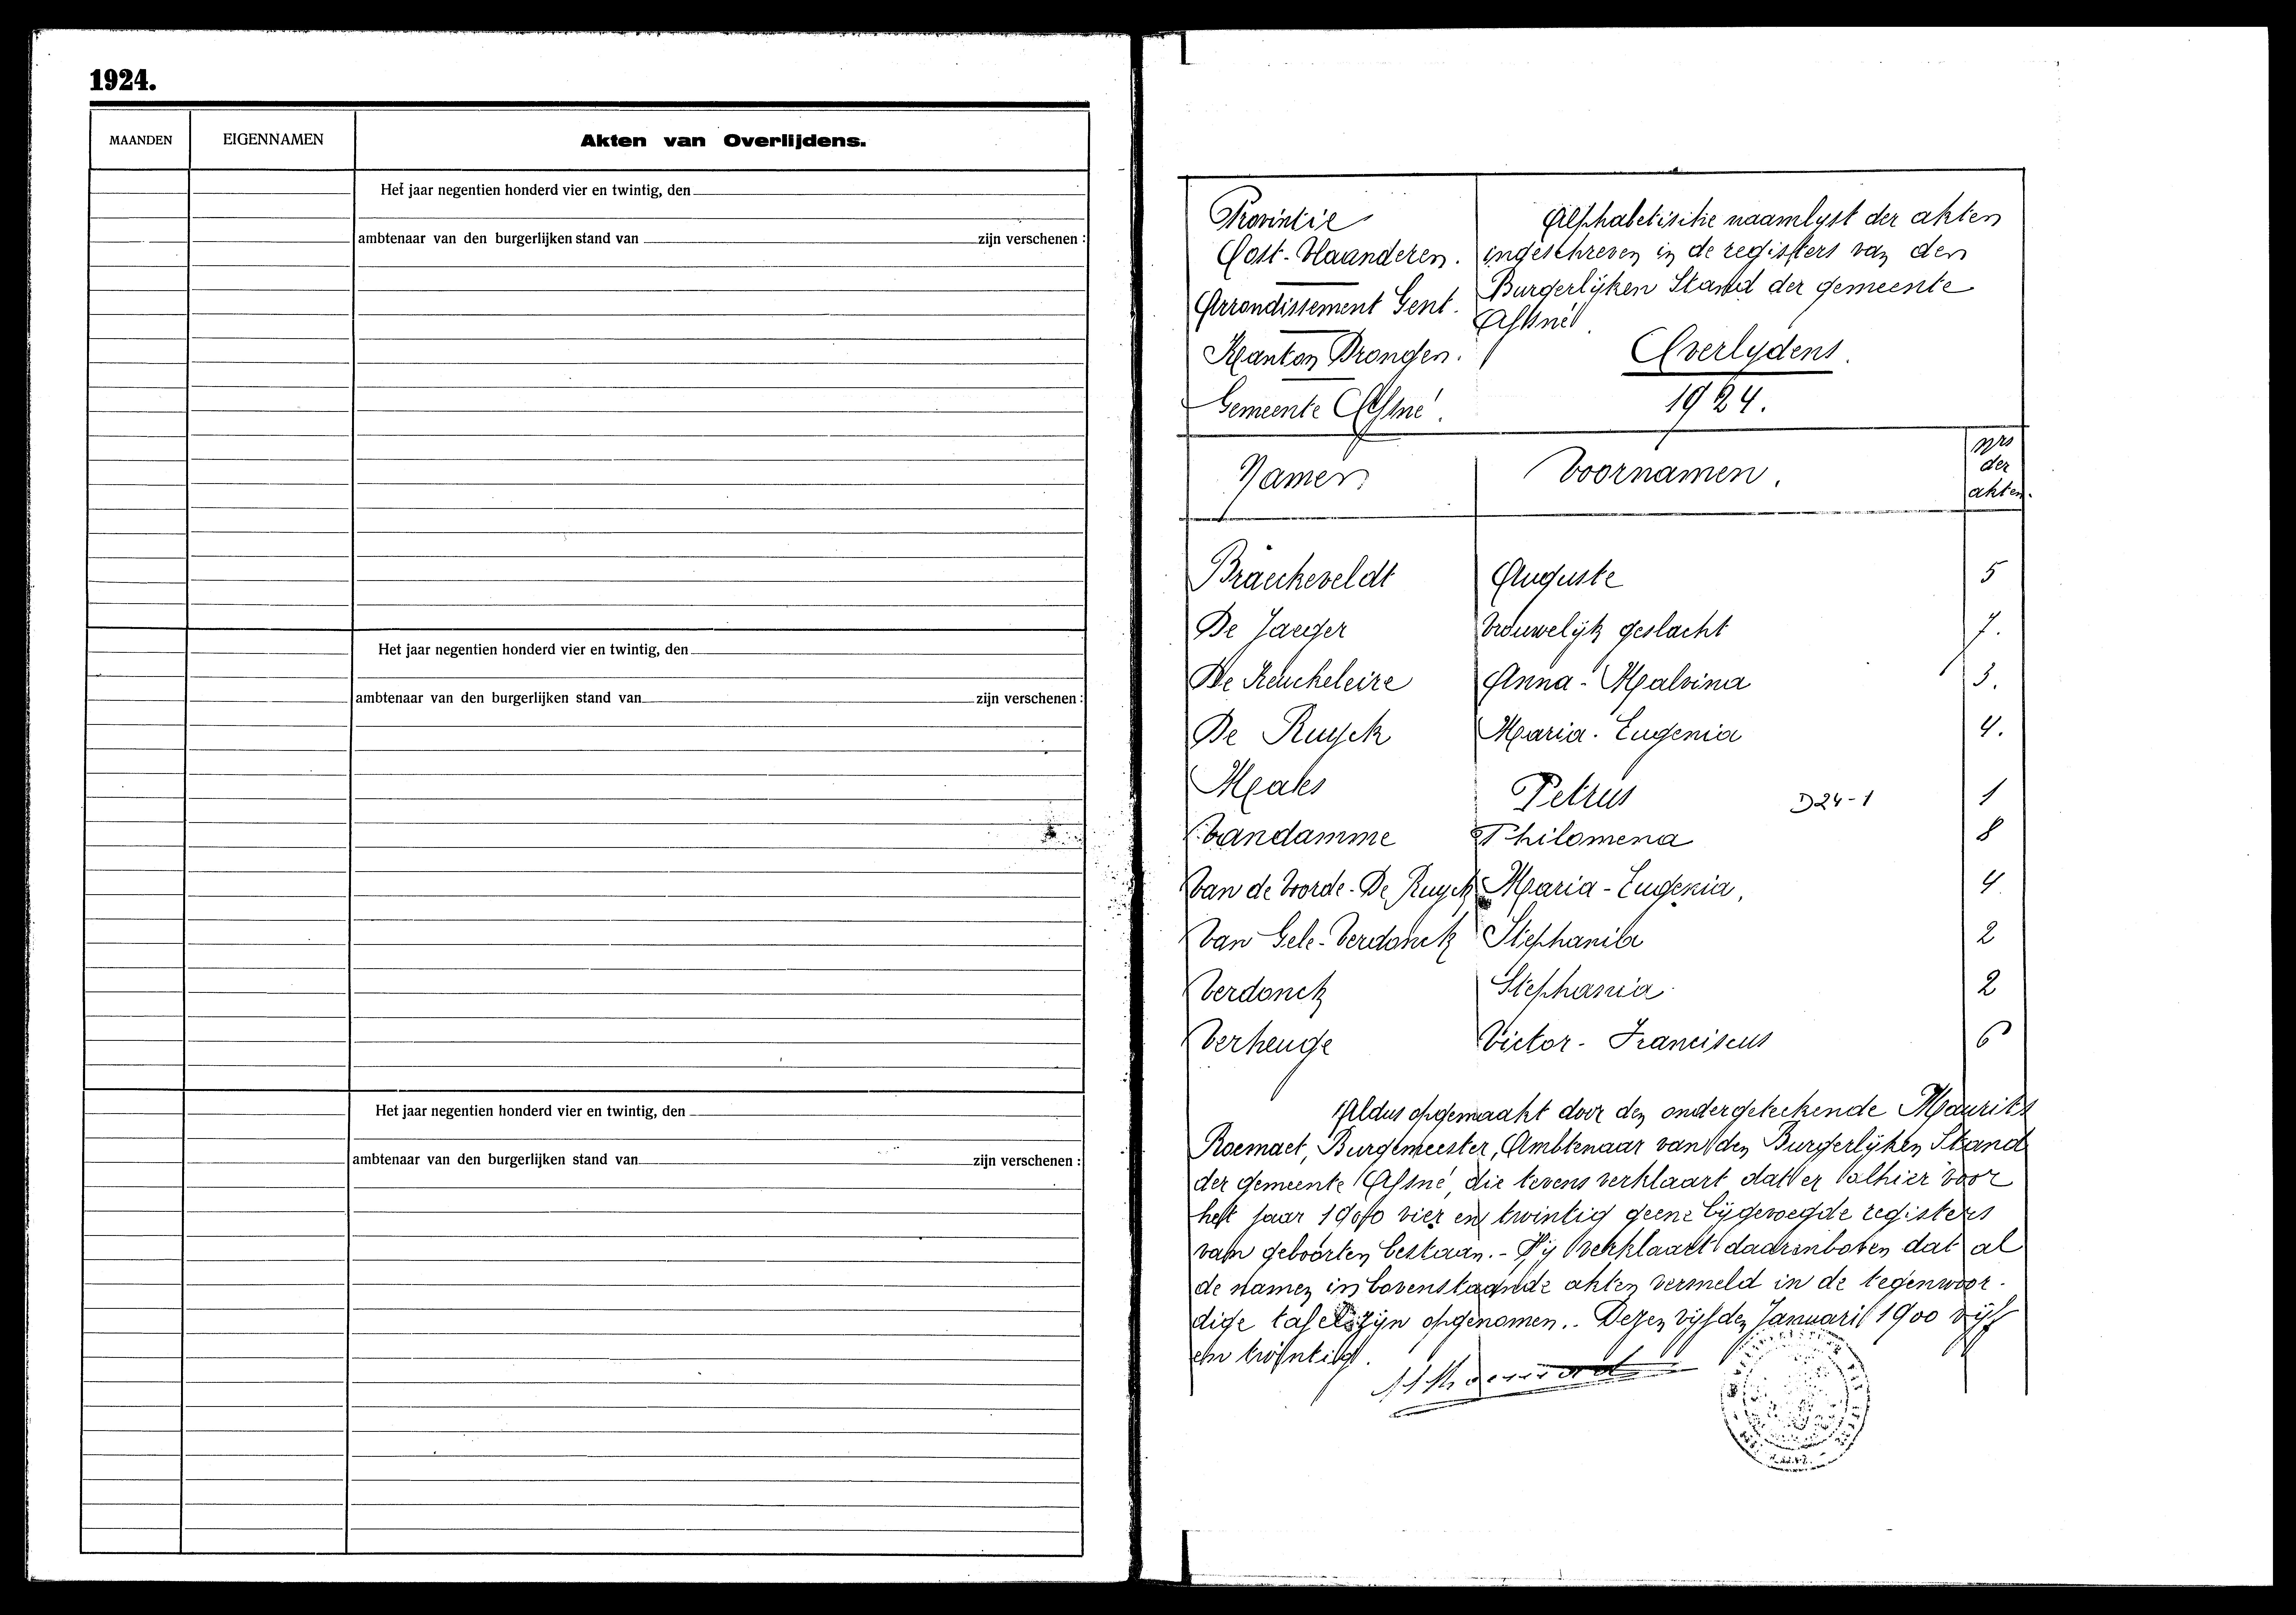 1924.
MAANDEN EIGENNAMEN Akten van Overlijdens.
Het jaar negentien honderd vier en twintig, den
ambtenaar van den burgerlijken stand van zijn verschenen :
Het jaar negentien honderd vier en twintig, den
ambtenaar van den burgerlijken stand van zijn verschenen :
Het jaar negentien honderd vier en twintig, den
ambtenaar van den burgerlijken stand van zijn verschenen :
Provintie
Oost-Vlaanderen.
Arrondissement Gent.
Kanton Drongen.
Gemeente Afsné.
Alphabetische naamlyst der akten
ingeschreven in de registers van den
Burgerlijken Stand der gemeente
Afsné.
Overlydens.
1924.
Namen Voornamen. Nrs
der
akten.
Braeckeveldt Auguste 5
De Jaeger Vrouwelijk geslacht 7.
De Keuckeleire Anna-Malvina 3.
De Ruyck Maria-Eugenia 4.
Maes Petrus D24-1 1
Vandamme Philomena 8
Van de Voorde-De Ruyck Maria-Eugenia, 4
Van Gele-Verdonck Stephania 2
Verdonck Stephania 2
Verheuge Victor-Franciscus 6
Aldus opgemaakt door den ondergeteekende Maurits
Roemaet, Burgemeester, Ambtenaar van den Burgerlijken Stand
der gemeente Afsné, die tevens verklaart dat er alhier voor
het jaar 1900 vier en twintig geene bijgevoegde registers
van geboorten bestaan.- Hij verklaart daarenboven dat al
de namen in bovenstaande akten vermeld in de tegenwoor-
dige tafel zijn opgenomen.- Dezen vijfden Januari 1900 vijf
en twintig.